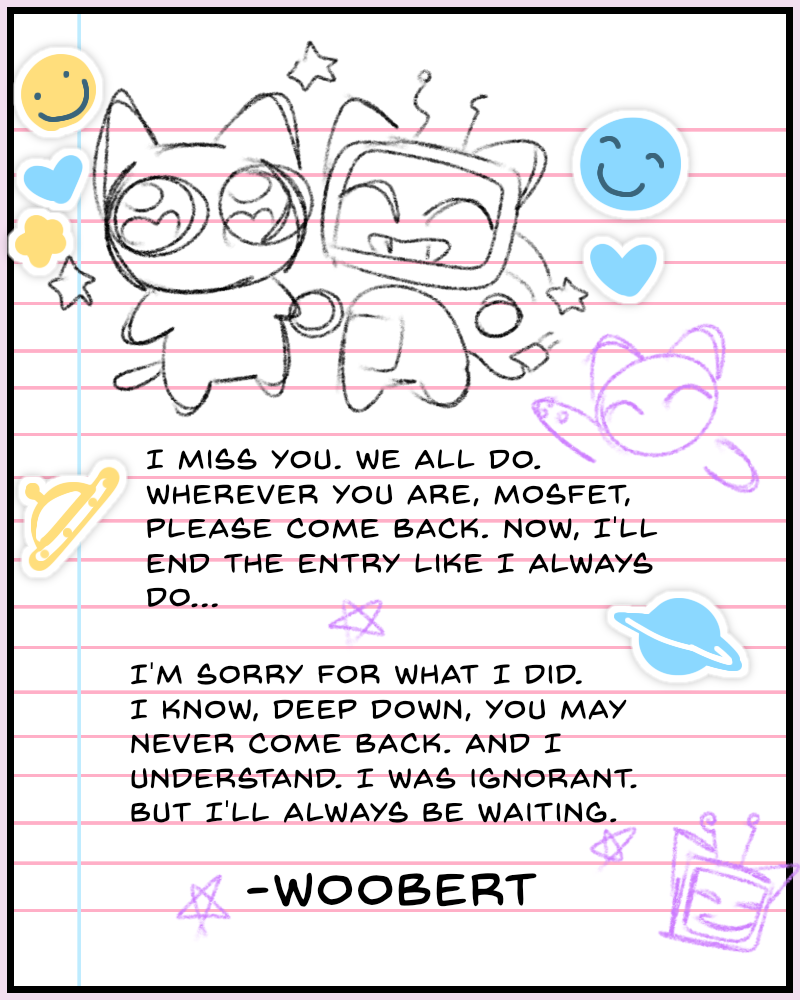 I MISS YOU. WE ALL DO.
WHEREVER YOU ARE, MOSFET,
PLEASE COME BACK. NOW, I'LL
END THE ENTRY LIKE I ALWAYS
DO...
I'M SORRY FOR WHAT I DID.
I KNOW, DEEP DOWN, YOU MAY
NEVER COME BACK. AND I
UNDERSTAND. I WAS IGNORANT.
BUT I'LL ALWAYS BE WAITING.
-WOOBERT